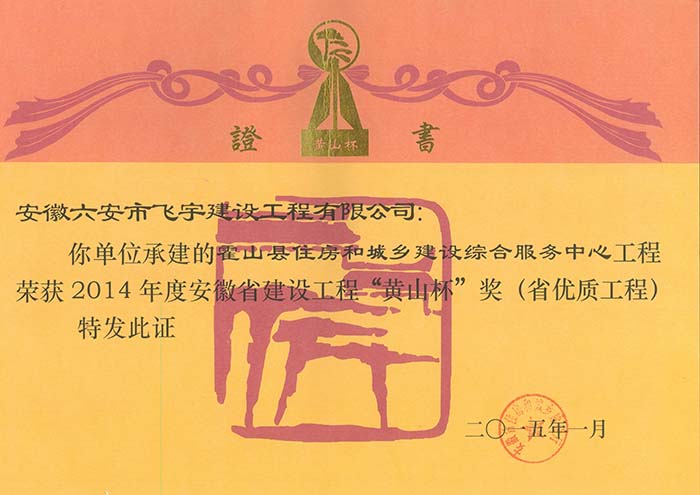 黄山杯
證 書
安徽六安市飞宇建设工程有限公司：
你单位承建的霍山县住房和城乡建设综合服务中心工程
荣获 2014 年度安徽省建设工程“黄山杯”奖（省优质工程）
特发此证
二〇一五年一月